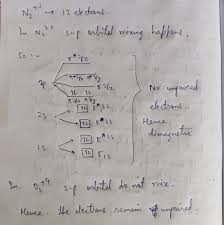 N₂⁺² → 12 electrons
In N₂⁺² s-p orbital mixing happens,
So :-
σ*2pz
π*2px π*2py
2p
σ2pz
π2px π2py
σ*2s
2s
σ2s
σ*1s
1s
σ1s
No unpaired
electrons.
Hence
dimagnetic
In O₂⁺⁴ s-p orbital do not mix.
Hence the electrons remain unpaired.